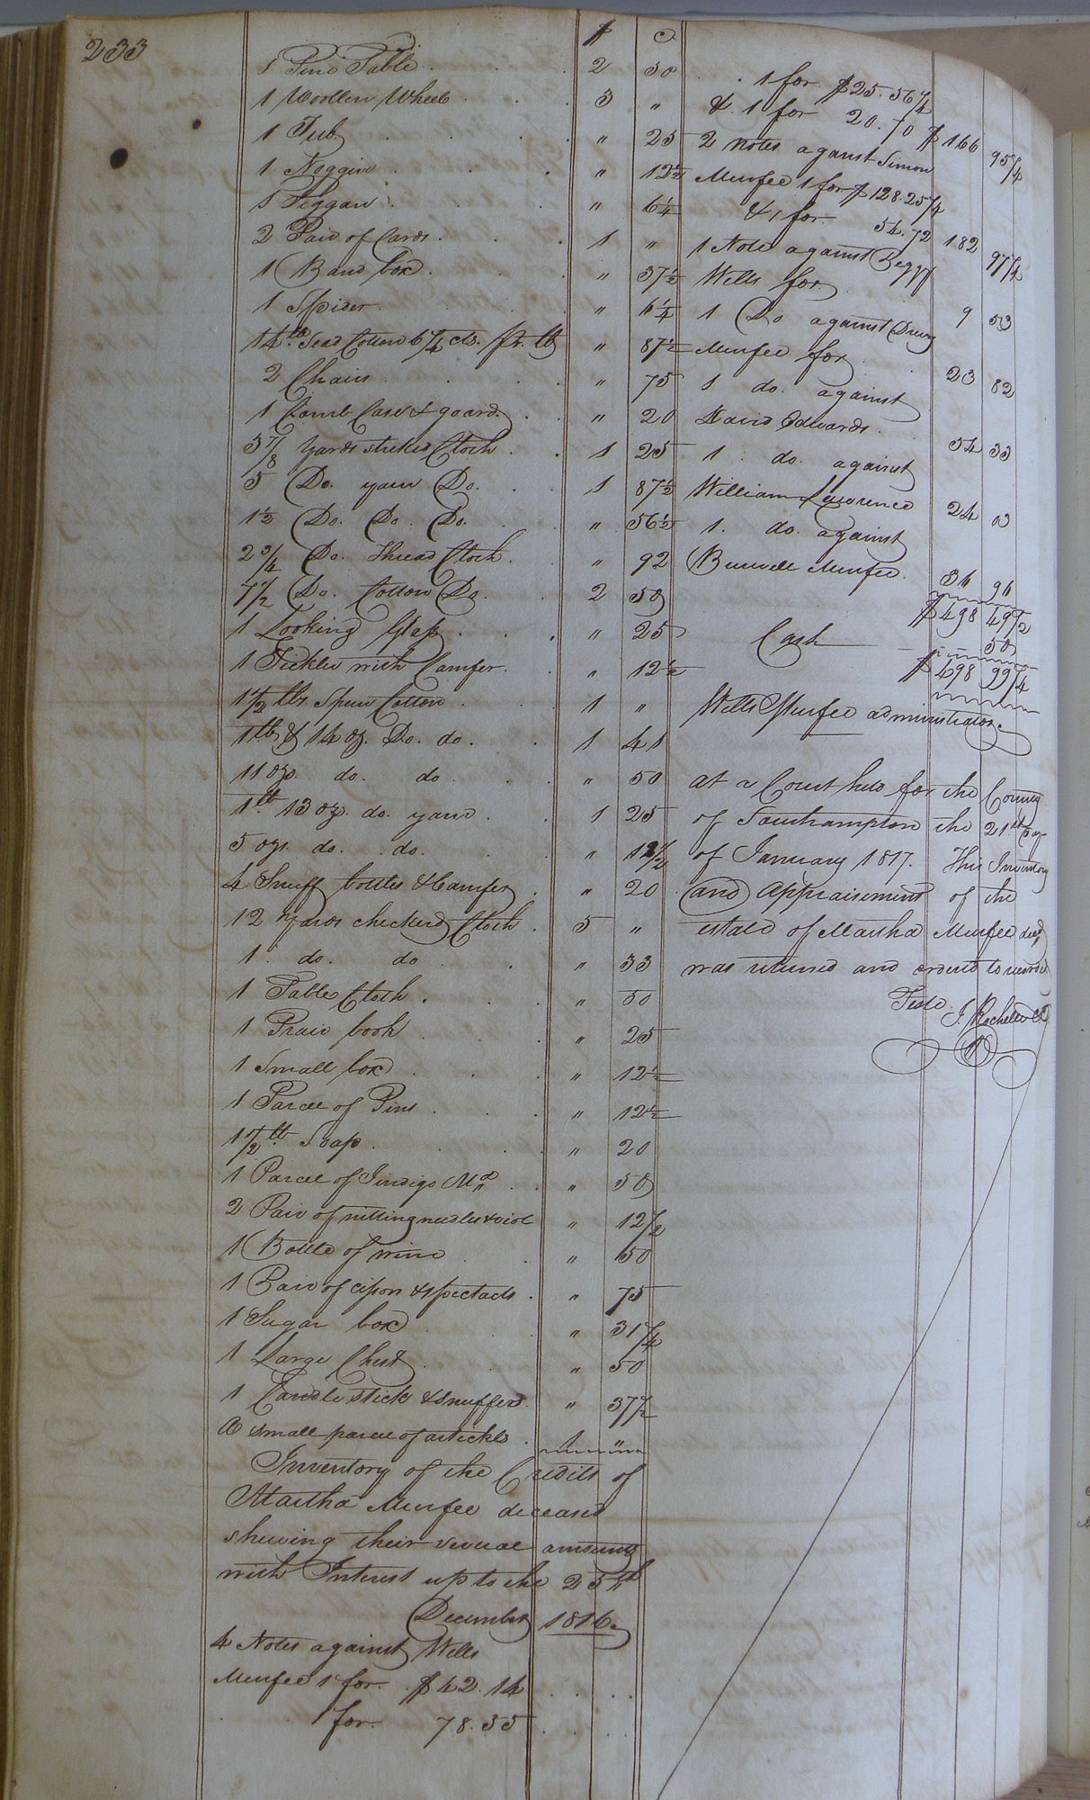 233
$ c
1 Pine Table . 2 50
1 Woollen Wheel . . . 3 "
1 Tub . . . " 25
1 Noggin . . . " 12½
1 Piggan . . . " 6¼
2 Pair of Cards . . . 1 "
1 Band box . . . " 37½
1 Spider " 6¼
14 lb Seed Cotton 6¼ cts. pr. lb " 87½
2 Chairs . . . " 75
1 Comb Case & goard . " 20
3 7/8 yards striked Cloth . . 1 25
5 Do. yarn Do. . . 1 87½
1½ Do. Do. Do. . . " 56½
2¾ Do. Thread Cloth . . " 92
4½ Do. Cotton Do. . . 2 50
1 Looking Glass . . . " 25
1 Tickler with Camfer . . " 12½
1½ lbs. Spun Cotton . . 1 "
1 lb & 14 oz. Do. do. . . 1 41
11 ozs. do. do . . " 50
1 lb 13 oz. do. yarn . . 1 25
5 ozs. do. do. . " 12½
4 Snuff bottles & Camfer . " 20
12 Yards checkerd Cloth . 5 "
1 . do. do . " 33
1 Table Cloth . . " 50
1 Prair book . . " 25
1 Small box . . . " 12½
1 Parcel of Pins . . . " 12½
1½ lb Soap . . . " 20
1 Parcel of Indigo Md . . " 50
2 Pair of nitting needles & viol " 12½
1 Bottle of wine . . " 50
1 Pair of cison & spectacls . " 75
1 Sugar box . " 31¼
1 Large Chest . . " 50
1 Candle stick & snuffers . " 37½
A small parcel of artickles . 1 "
Inventory of the Credits of
Martha Murfee deceased
shewing their several amounts
with Interest up to the 25th
December 1816.
4 Notes against Wells
Murfee 1 for . $42.14 . . .
1 for . 78.55 . . .
. 1 for $25.56¼
& 1 for 20.70 $ 166 95¼
2 notes against Simon
Murfee 1 for $128.25¼
& 1 for . 54.72 182 97¼
1 Note against Beggy
Wells for . 9 53
1 Do against Drury
Murfee for . 23 82
1 do. against
David Edwards . . 54 33
1 . do. against
William Lawrence 24 0
1 . do. against
Burwell Murfee . 36 96
$ 498 49½
Cash 50
$ 498 99¼
Wells Murfee administrator.
At a Court held for the County
of Southampton the 21st day
of January 1817. This Inventory
and Appraisement of the
estate of Martha Murfee decd.
was returned and ordered to recorded
Teste. J. Rochelle C